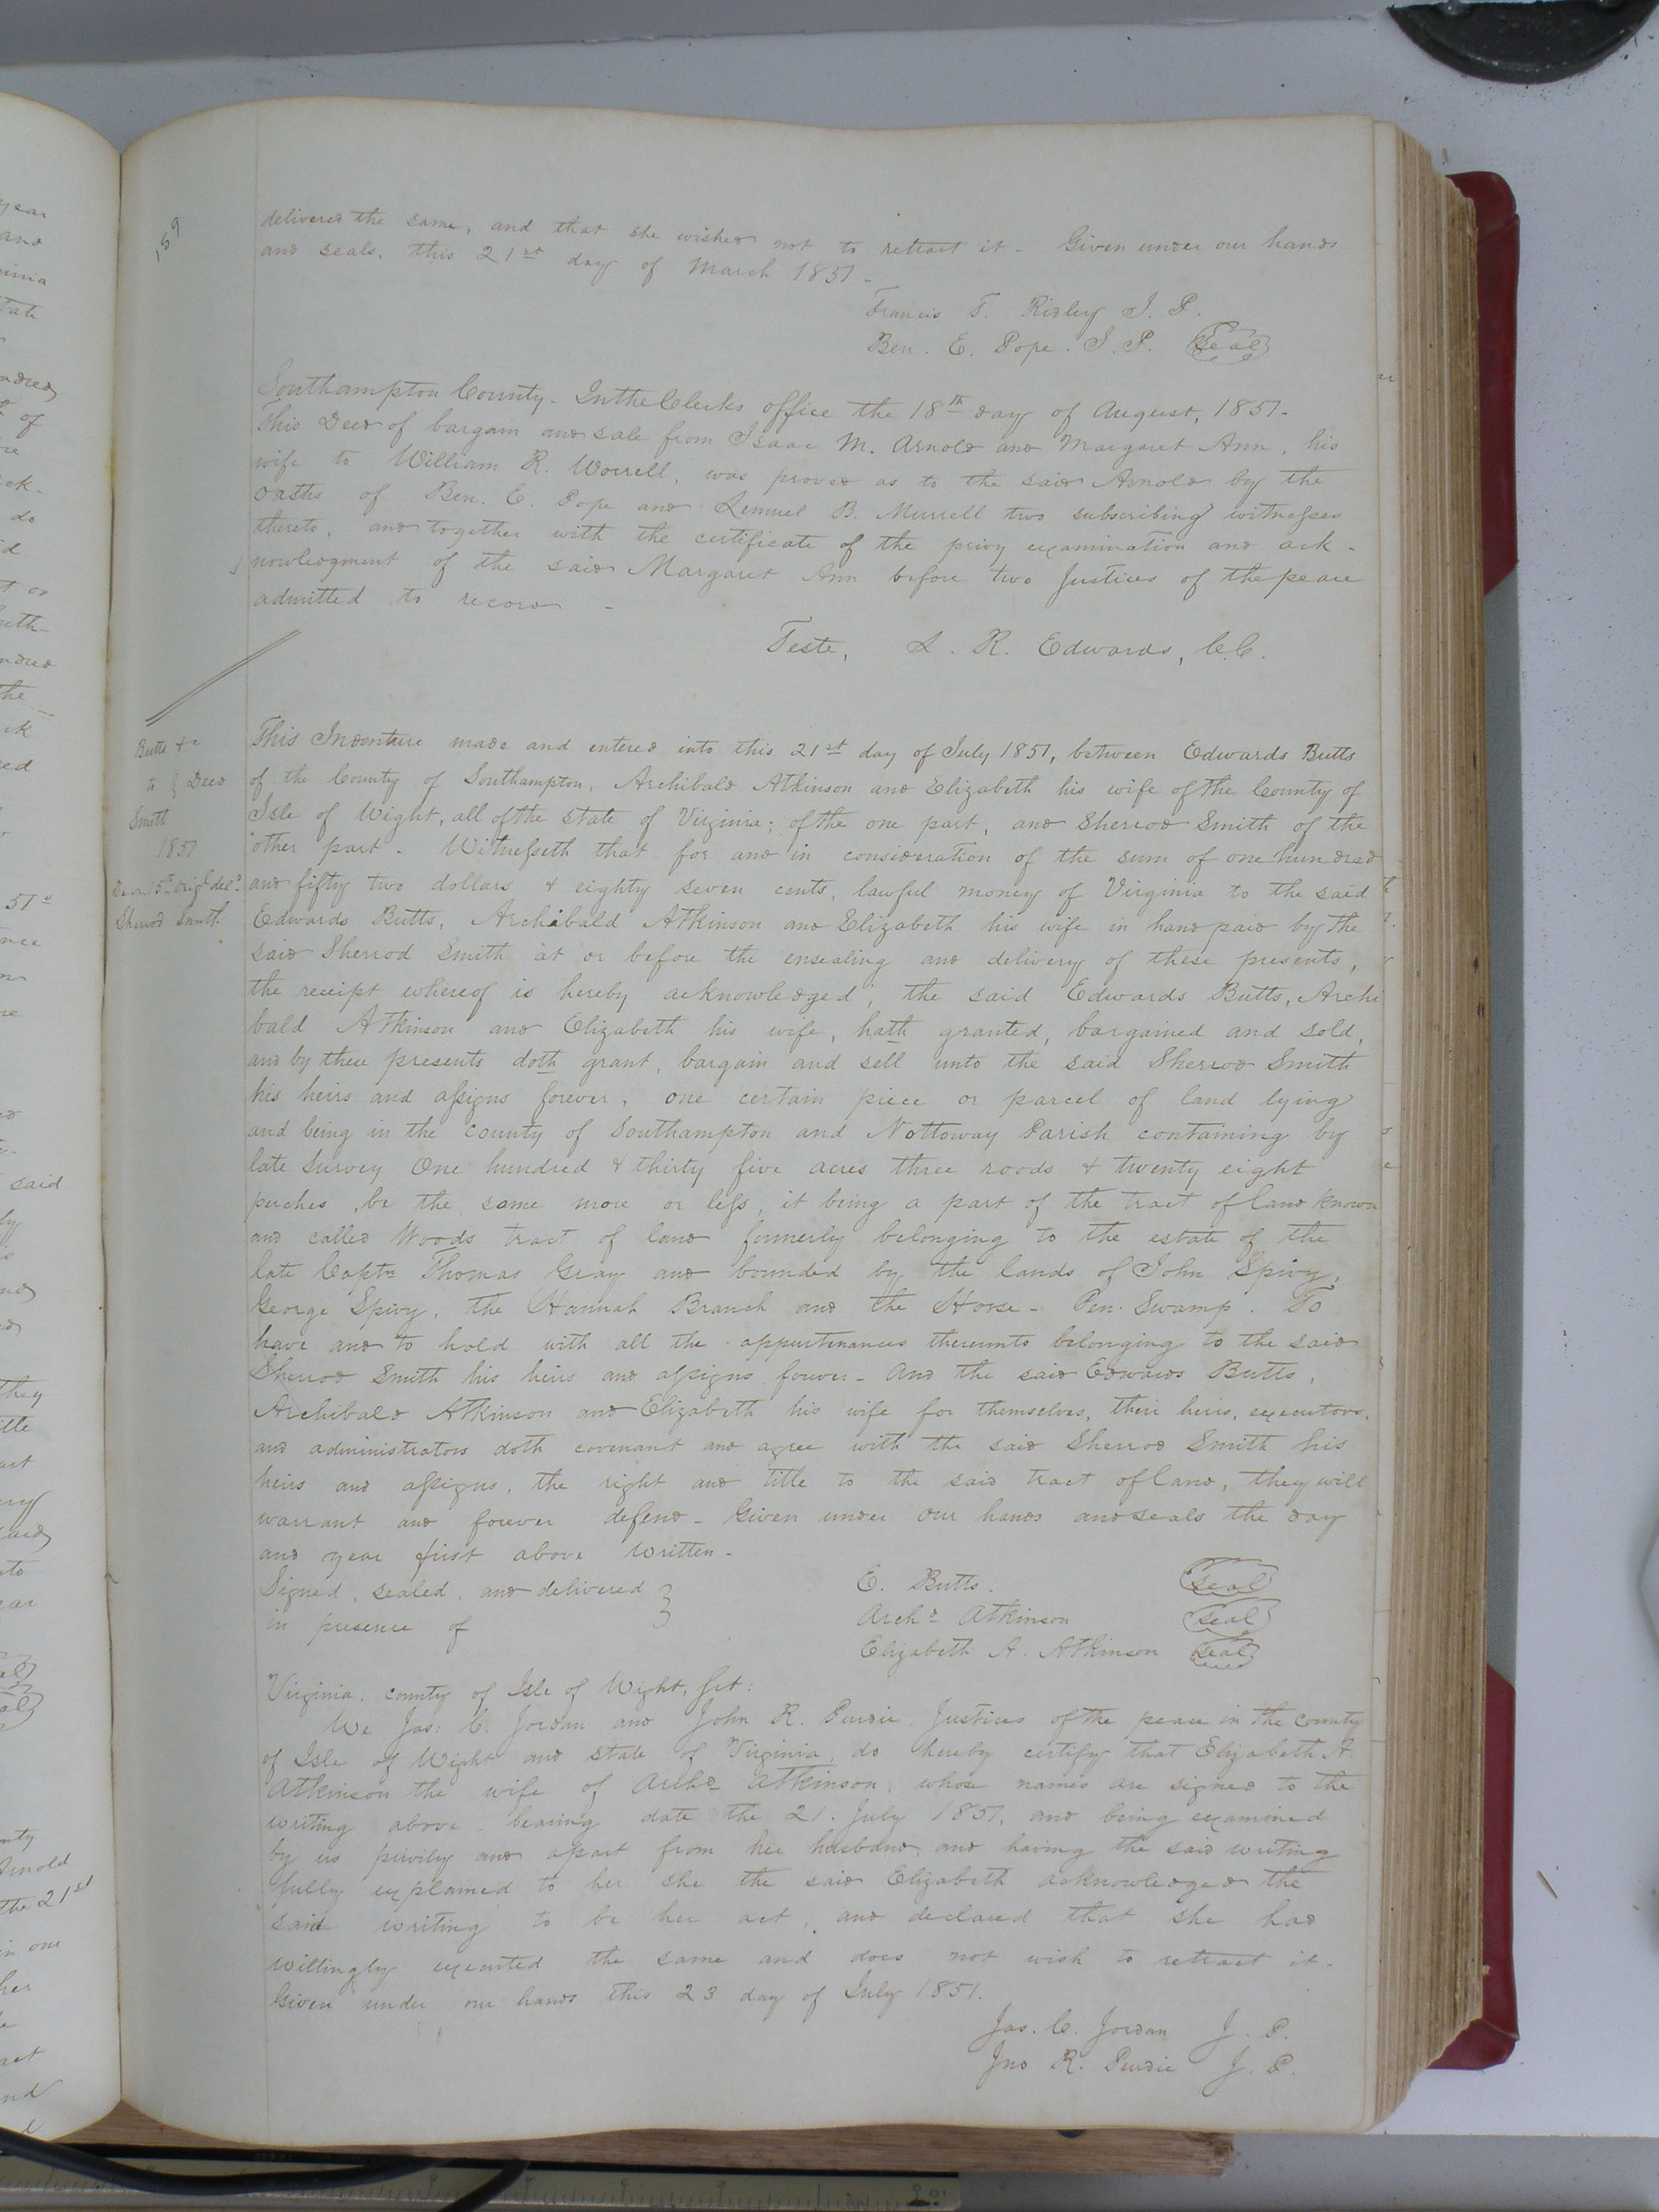 159
delivered the same, and that she wished not to retract it - Given under our hands
and seals, this 21st day of March 1851 -
Francis T. Ridley J. P.
Ben. E. Pope. J. P. Seal
Southampton County - In the Clerks office the 18th day of August, 1851 -
This Deed of bargain and sale from Isaac M. Arnold and Margaret Ann, his
wife to William R. Worrell, was proved as to the said Arnold by the
oaths of Ben. E. Pope and Lemuel B. Murrell two subscribing witnesses
thereto, and together with the certificate of the privy examination and ack-
nowledgment of the said Margaret Ann before two Justices of the peace
admitted to record -
Teste, L. R. Edwards, C.C.
Butts &c
to } Deed
Smith
1851
Decr 15th Origl deld
Sherod Smith
This Indenture made and entered into this 21st day of July 1851, between Edwards Butts
of the County of Southampton, Archibald Atkinson and Elizabeth his wife of the County of
Isle of Wight, all of the State of Virginia; of the one part, and Sherrod Smith of the
other part - Witnesseth that for and in consideration of the sum of one hundred
and fifty two dollars & eighty seven cents, lawful money of Virginia to the said
Edwards Butts, Archibald Atkinson and Elizabeth his wife in hand paid by the
said Sherrod Smith at or before the ensealing and delivery of these presents,
the receipt whereof is hereby acknowledged; the said Edwards Butts, Archi
bald Atkinson and Elizabeth his wife, hath granted, bargained and sold,
and by these presents doth grant, bargain and sell unto the said Sherrod Smith
his heirs and assigns forever, one certain piece or parcel of land lying
and being in the county of Southampton and Nottoway Parish containing by
late survey One hundred & thirty five acres three roods & twenty eight
perches, be the same more or less, it being a part of the tract of land known
and called Woods tract of land formerly belonging to the estate of the
late Captn Thomas Gray and bounded by the lands of John Spivy,
George Spivy, the Hannah Branch and the Horse - Pen - Swamp. To
have and to hold with all the appurtenances thereunto belonging to the said
Sherrod Smith his heirs and assigns forever - And the said Edwards Butts,
Archibald Atkinson and Elizabeth his wife for themselves, their heirs, executors,
and administrators doth covenant and agree with the said Sherrod Smith his
heirs and assigns, the right and title to the said tract of land, they will
warrant and forever defend - Given under our hands and seals the day
and year first above written -
Signed, sealed, and delivered }
in presence of
E. Butts. Seal
Archd Atkinson Seal
Elizabeth A. Atkinson Seal
Virginia, county of Isle of Wight, Sct:
We Jas: C. Jordan and John R. Purdie Justices of the peace in the county
of Isle of Wight and state of Virginia, do hereby certify that Elizabeth A.
Atkinson the wife of Archd Atkinson, whose names are signed to the
writing above bearing date the 21. July 1851, and being examined
by us privily and apart from her husband, and having the said writing
fully explained to her she the said Elizabeth acknowledged the
said writing to be her act, and declared that she had
willingly executed the same and does not wish to retract it -
Given under our hands this 23 day of July 1851.
Jas. C. Jordan J. P.
Jno R. Purdie J. P.